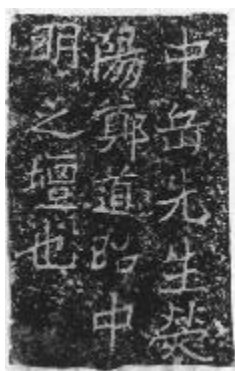 中岳先生熒
陽鄭道昭中
明之壇也